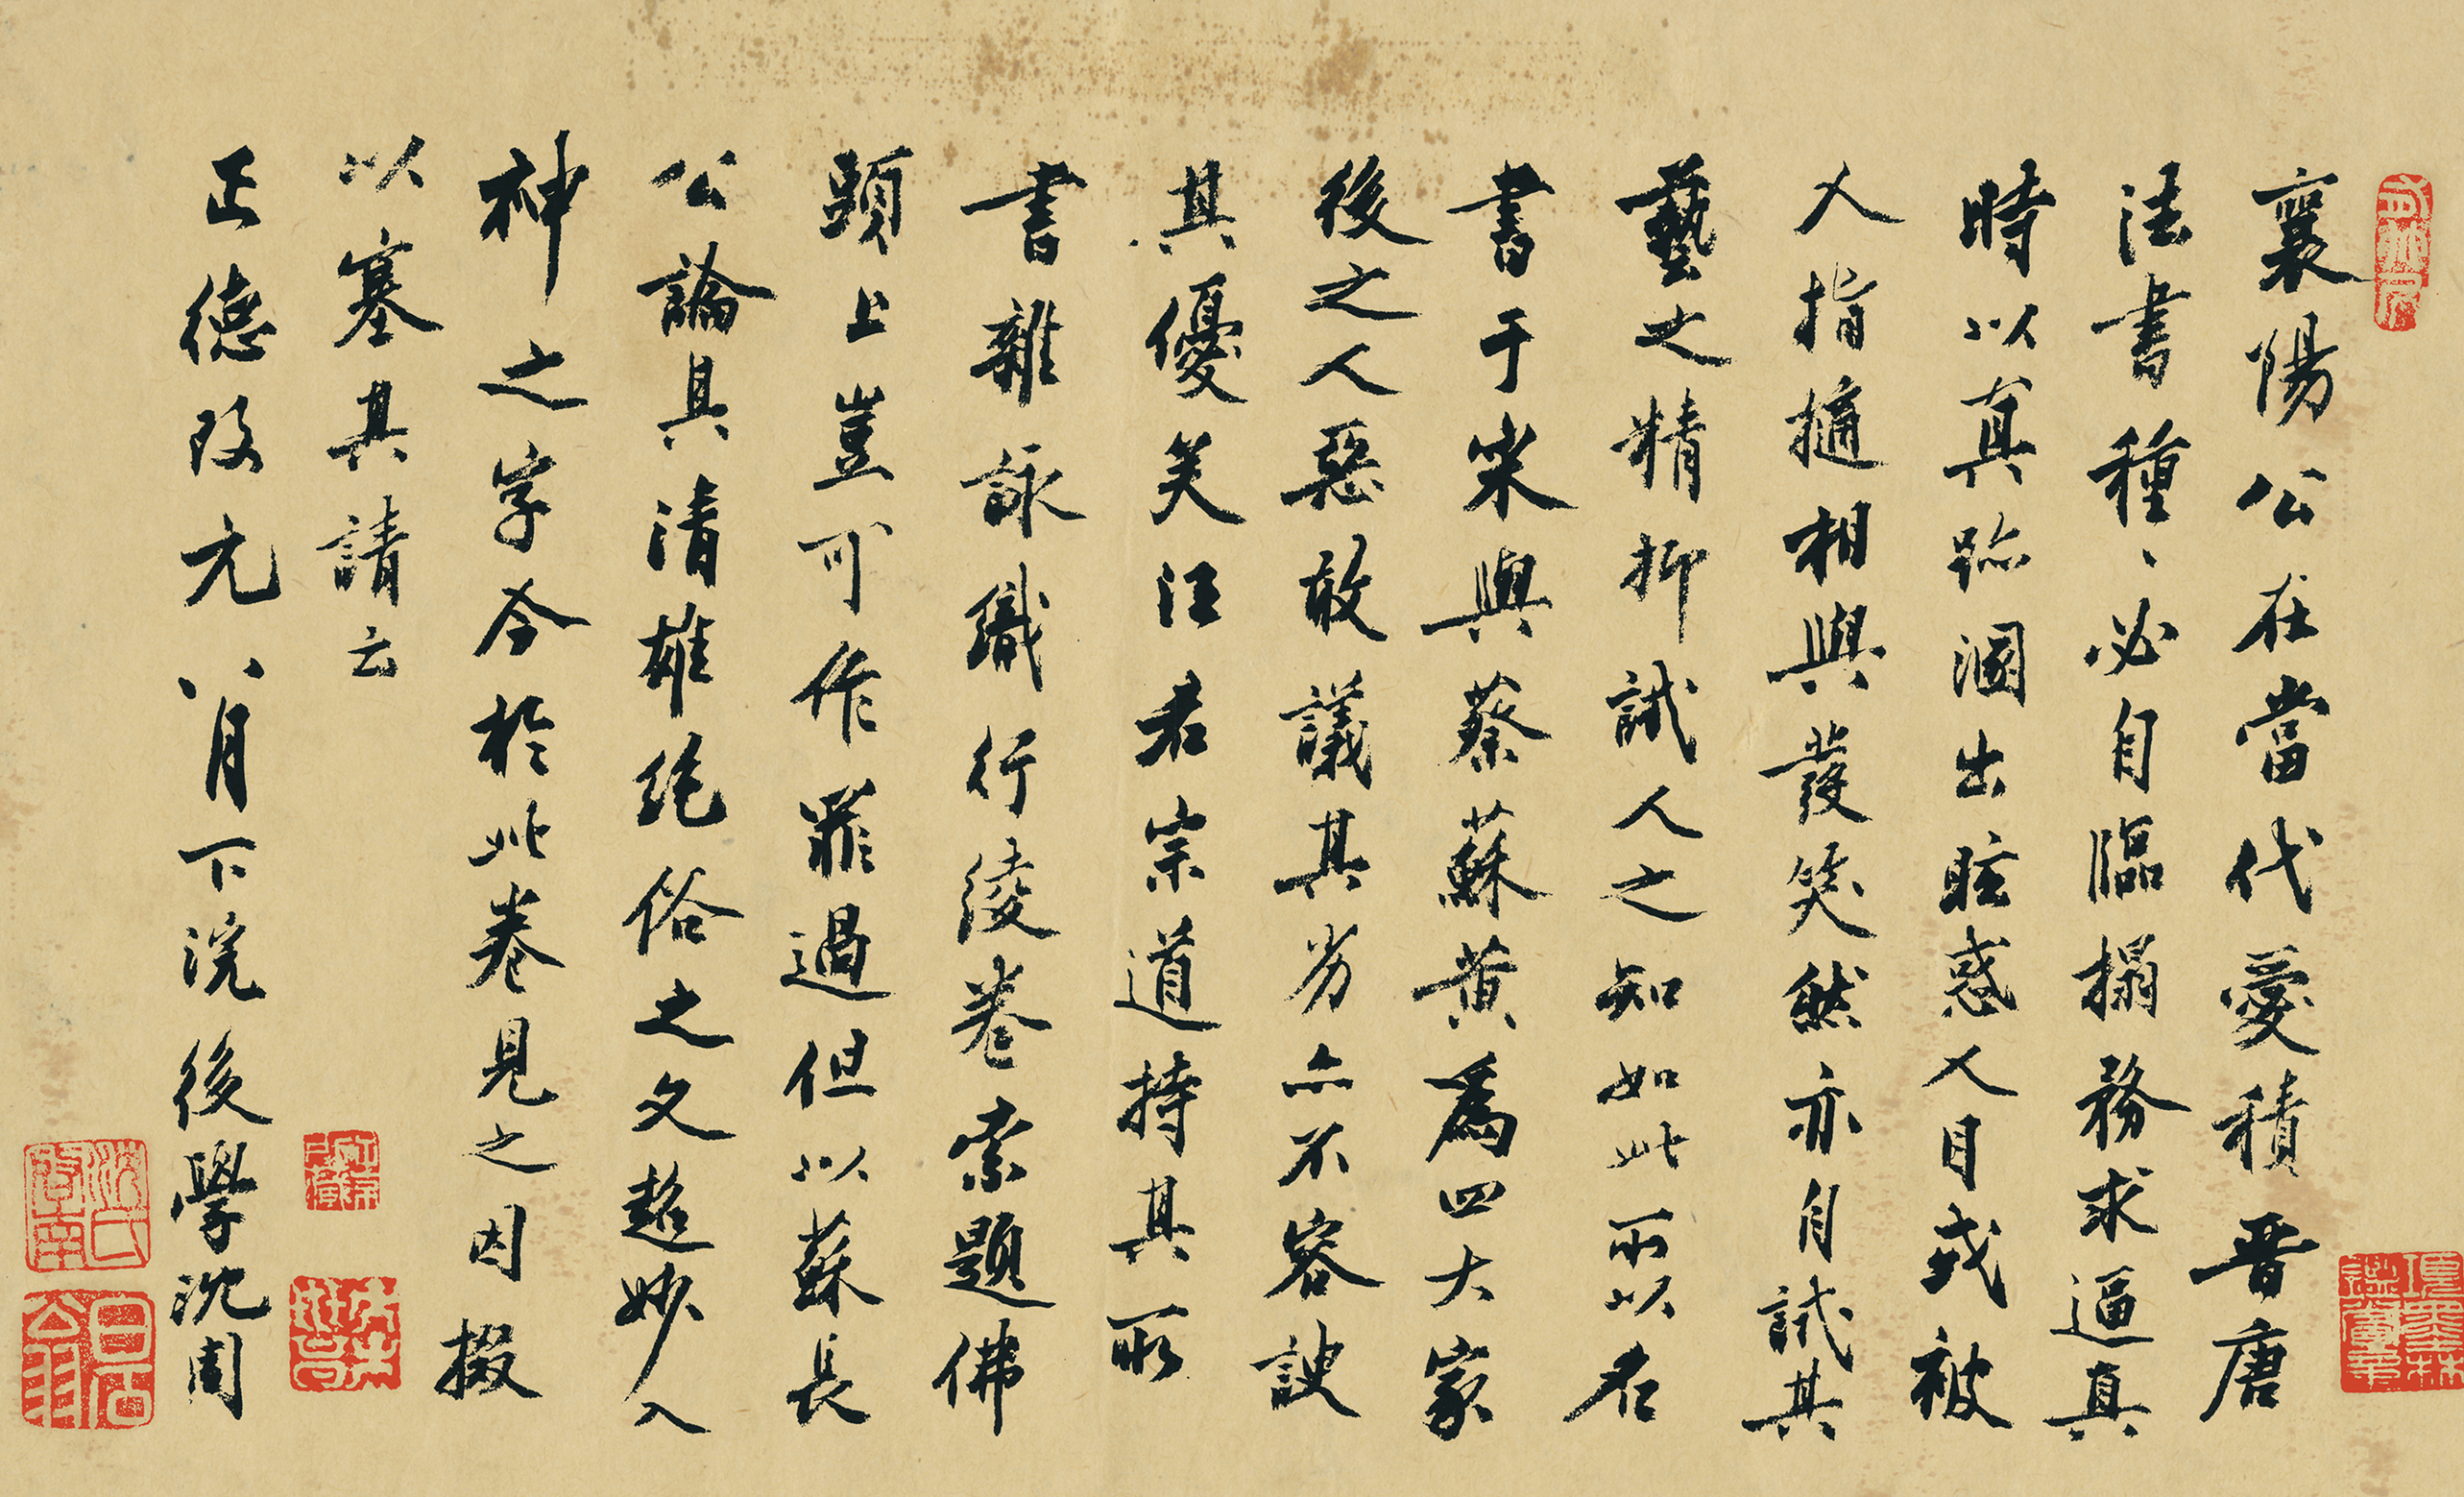 襄陽公在當代愛積晋唐
法書種、必自臨搨務求逼真
時以真跡溷出眩惑人目或被
人指擿相與發笑然亦自試其
藝之精抑試人之知如此所以名
書于宋與蔡蘇黄為四大家
後之人惡敢議其劣亦不容諛
其優矣汪君宗道持其所
書雜詠織行綾卷索題佛
頭上豈可作罪過但以蘇長
公論具清雄絶俗之文超妙入
神之字今於此卷見之因掇
以塞其請云
正德改元八月下浣後學沈周